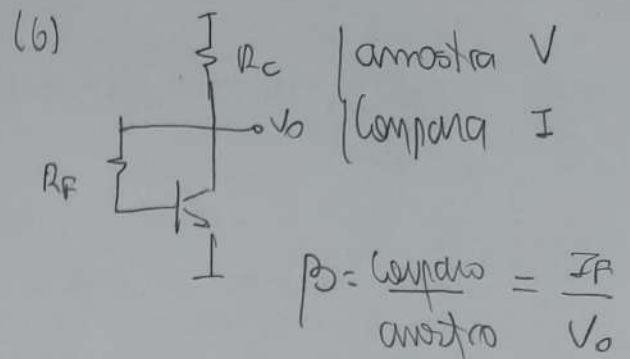 (6)
Rc
amostra V
Vo
Compara I
RF
β = compara / amostra = IF / Vo